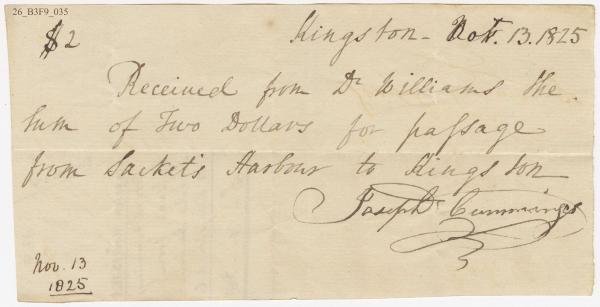 26_B3F9_035
$2
Kingston - Nov. 13. 1825
Received from Dr Williams the
Sum of Two Dollars for passage
from Sackets Harbour to Kingston
Joseph Cummings
Nov. 13
1825